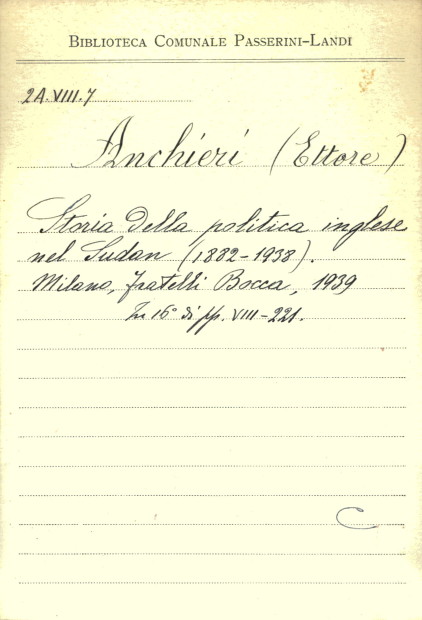 BIBLIOTECA COMUNALE PASSERINI-LANDI
2A.VIII.7
Anchieri (Ettore)
Storia della politica inglese
nel Sudan (1882-1938).
Milano, Fratelli Bocca, 1939
In 16° di pp. VIII-221.
C